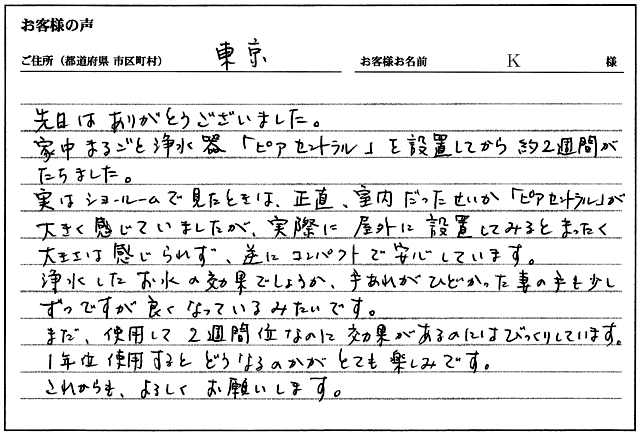 お客様の声
ご住所（都道府県 市区町村） 東京 お客様お名前 K 様
先日は ありがとうございました。
家中まるごと浄水器「ピアセントラル」を設置してから約2週間が
たちました。
実はショールームで見たときは、正直、室内だったせいか「ピアセントラル」が
大きく感じていましたが、実際に屋外に設置してみるとまったく
大きさは感じられず、逆にコンパクトで安心しています。
浄水したお水の効果でしょうか、手あれがひどかった妻の手も少し
ずつですが良くなっているみたいです。
まだ、使用して2週間位なのに効果があるのにはびっくりしています。
1年位使用するとどうなるのかがとても楽しみです。
これからも、よろしくお願いします。